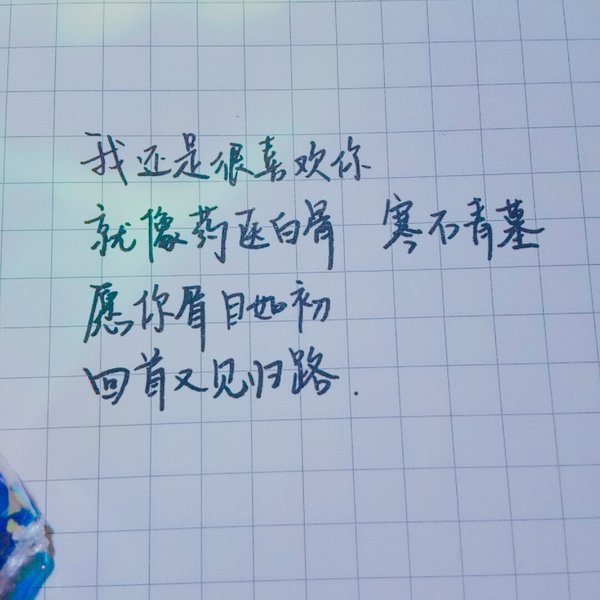 我还是很喜欢你
就像药医白骨 寒石青墓
愿你眉目如初
回首又见归路.